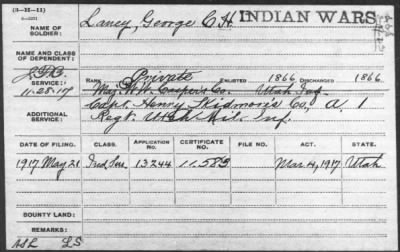 (3-BH-11)
NAME OF SOLDIER: Lancy, George C. H. INDIAN WARS
NAME AND CLASS OF DEPENDENT:
SERVICE: RANK Private ENLISTED 1866 DISCHARGED 1866
11-28-17 Maj. W. W. Casper's Co. Utah Inf.
ADDITIONAL SERVICE: Capt. Henry Co, A. 1
Regt. Utah Mil. Inf.
DATE OF FILING. CLASS. APPLICATION No. CERTIFICATE No. FILE No. ACT. STATE.
1917 May 21 Ind Sur. 13244 11583 Mar 4, 1917 Utah
BOUNTY LAND:
REMARKS: